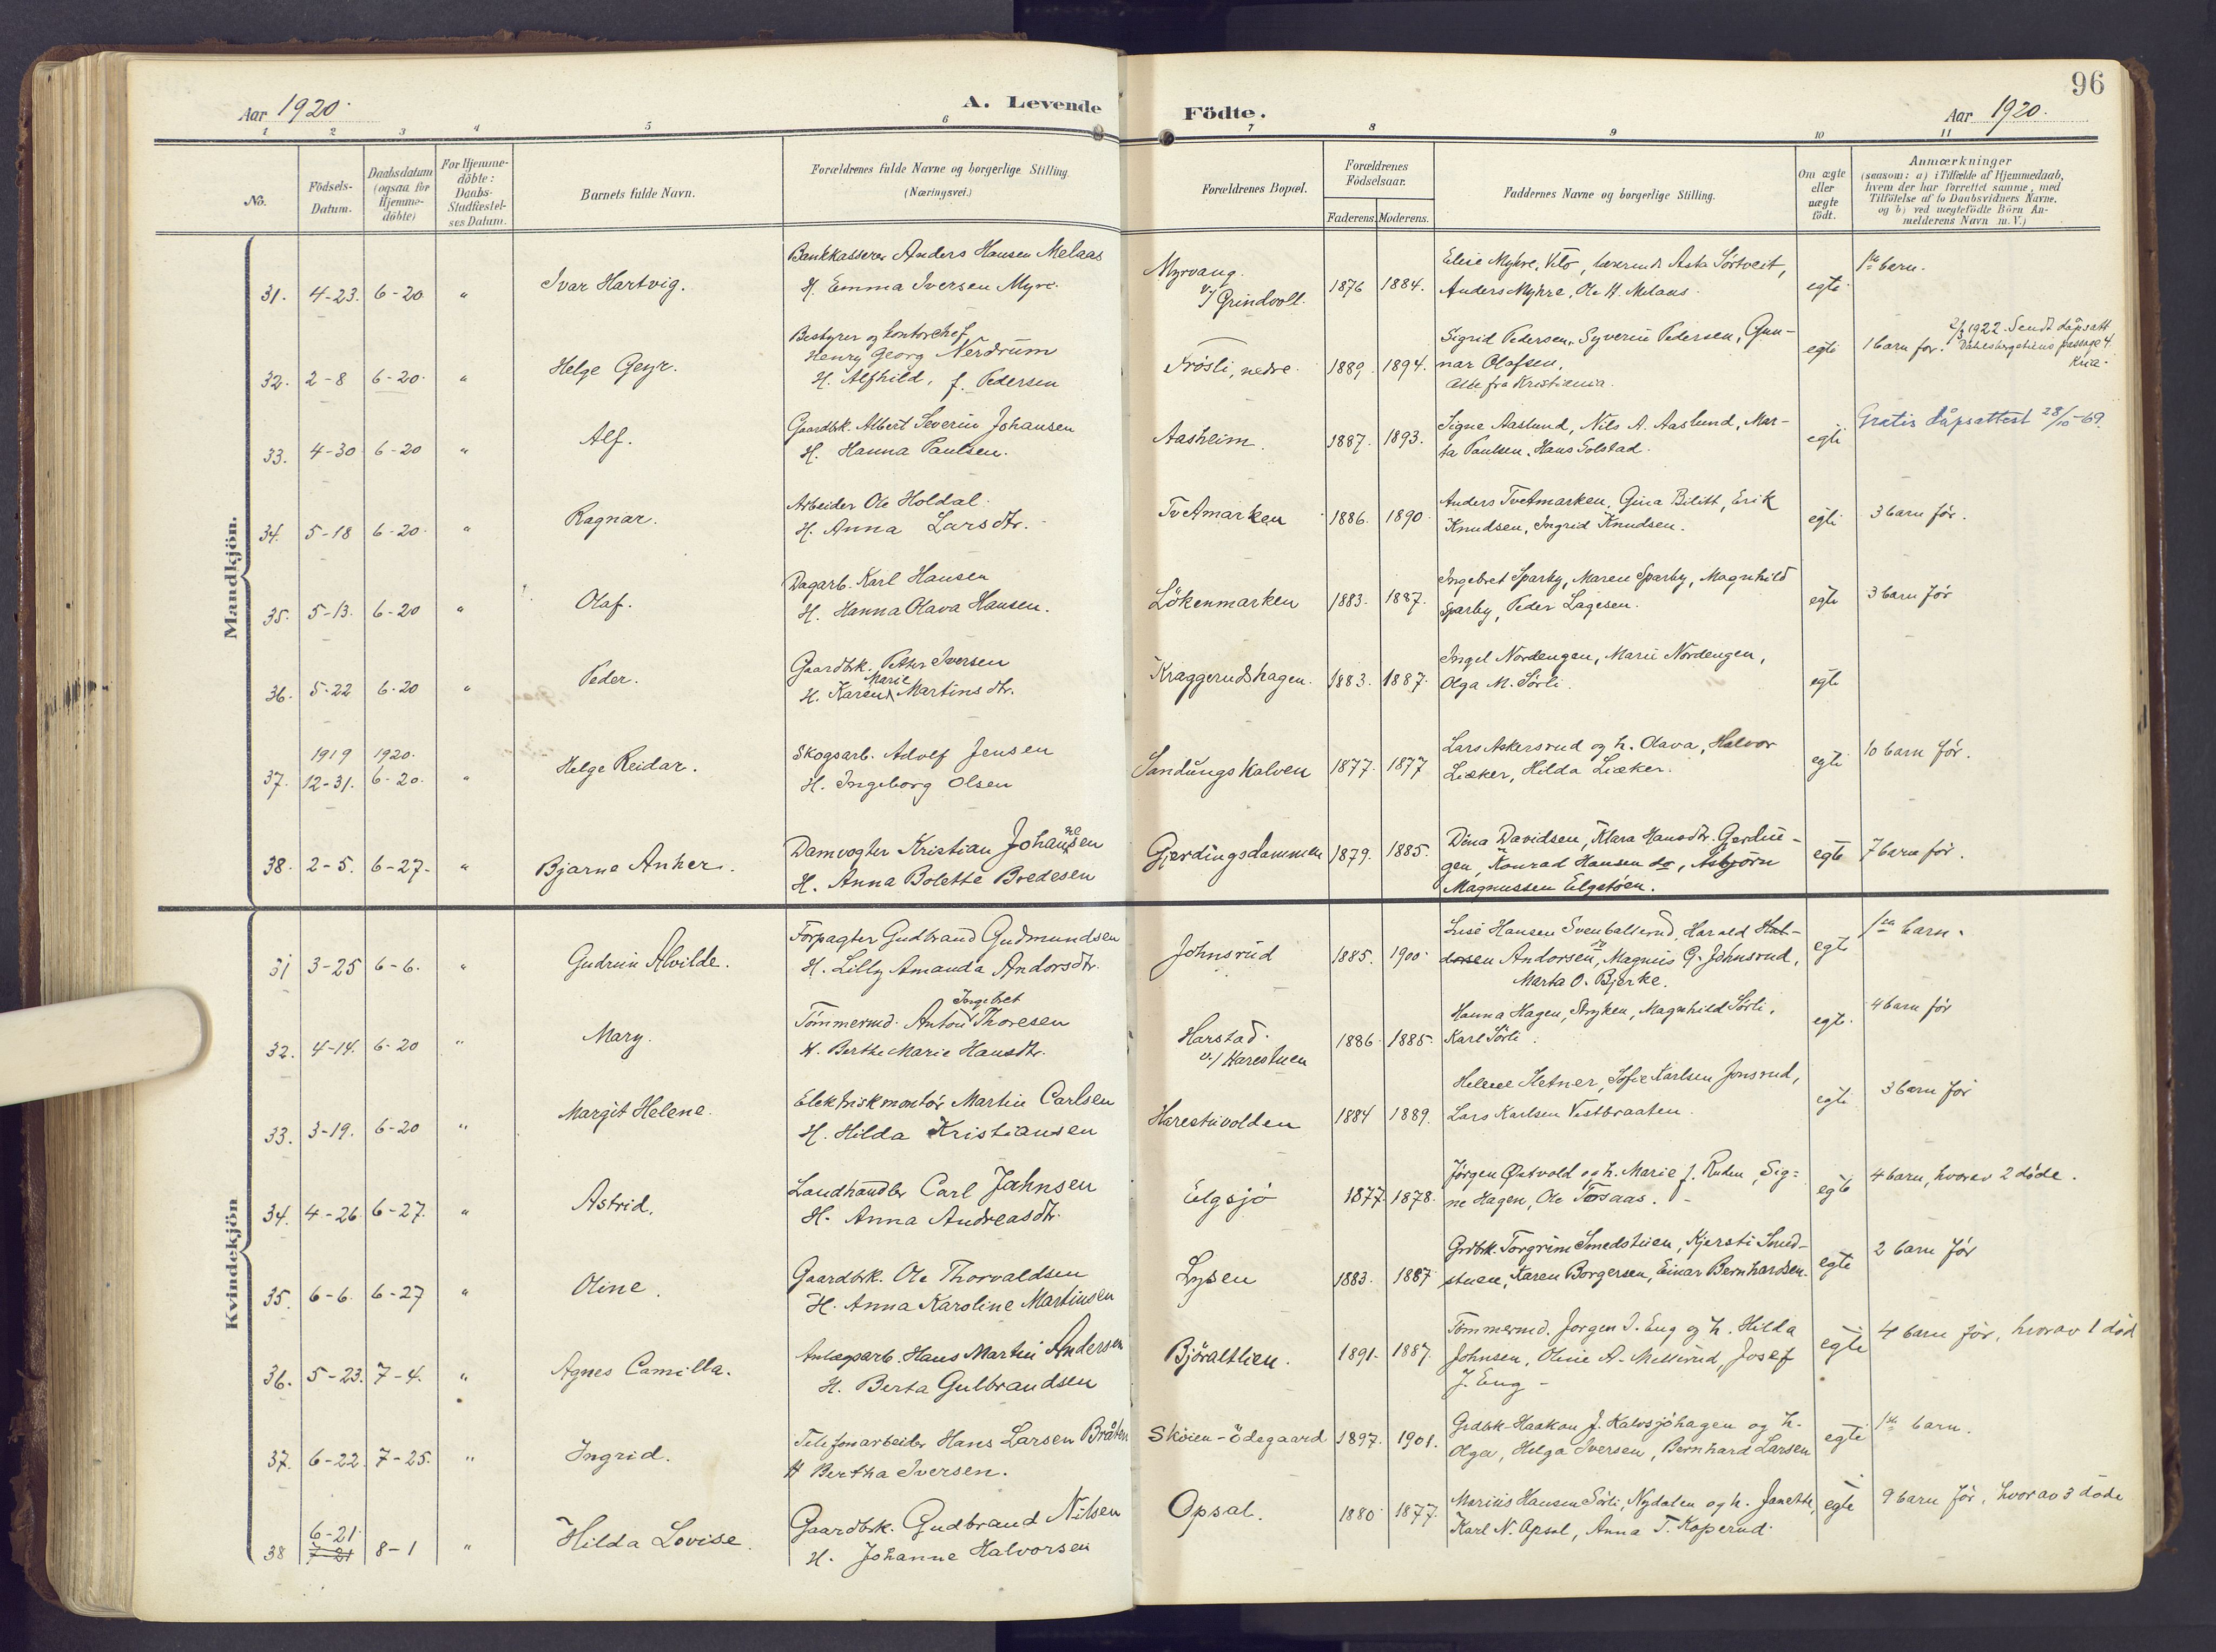 96
Aar 1920.
A. Levende
Födte.
Aar 1920.
1 2 3 4 5 6 7 8 9 10 11
No.
Födsels-
Datum.
Daabsdatum
(ogsaa for
Hjemme-
döbte)
For Hjemme-
döbte:
Daabs-
Stadfæstel-
ses Datum.
Barnets fulde Navn.
Forældrenes fulde Navne og borgerlige Stilling
(Næringsvei.)
Forældrenes Bopæl.
Forældrenes
Födselsaar.
Faderens. Moderens.
Faddernes Navne og borgerlige Stilling.
Om ægte
eller
uægte
födt.
Anmærkninger
(saasom: a) i Tilfælde af Hjemmedaab,
hvem der har forrettet samme, med
Tilföielse af to Daabsvidners Navne,
og b) ved uægtefödte Börn An-
melderens Navn m. V.)
Mandkjön.
31. 4-23. 6-20 " Ivar Hartvig.
Bankkasserer Anders Hansen Melaas
H. Emma Iversen Myre.
Myrvang.
v/ Grindvoll.
1876 1884.
Elise Myhre, Asta Sörtveit,
Anders Myhre, Ole H. Melaas.
egte
1ste barn.
32. 2-8 6-20. " Helge Geyr.
Bestyrer og kontorchef
Henry Georg Nerdrum
H. Alfhild, f. Pedersen
Frösli, nedre.
1889. 1894.
Sigrid Pedersen, Syverin Pedersen, Gun-
nar Olafsen.
alle fra Kristiania.
egte
1 barn før.
1922. Sendt dåpsatt.
passage 4
Kria.
33. 4-30 6-20 " Alf.
Gaardbk. Albert Severin Johansen
H. Hanna Paulsen.
Aasheim.
1887. 1893.
Signe Aaslund, Nils A. Aaslund, Mar-
ta Paulsen, Hans Solstad.
egte
Gratis dåpsattest 28/10-69.
34. 5-18 6-20. " Ragnar.
Arbeider Ole Holdal.
H. Anna Larsdtr.
Tvetmarken
1886. 1890
Anders Tvetmarken, Gina Bilitt, Erik
Knudsen, Ingrid Knudsen.
egte
3 barn før.
35. 5-13. 6-20 " Olaf.
Dagarb. Karl Hansen
H. Hanna Olava Hansen.
Lökenmarken
1883. 1887.
Ingebret Sparby, Maren Sparby, Magnhild
Sparby, Peder Lagesen.
egte
3 barn før
36. 5-22 6-20 " Peder.
Gaardbk. Petter Iversen
Marie
H. Karen Martinsdtr.
Kraggerudshagen.
1883. 1887.
Ingel Nordengen, Marie Nordengen,
Olga M. Sörli.
egte
1919 1920.
37. 12-31. 6-20. " Helge Reidar.
Skogsarb. Adolf Jensen
H. Ingeborg Olsen
Sandungskalven
1877. 1877
Lars Askersrud og h. Olava, Halvor
Liæker, Hilda Liæker.
egte
10 barn før.
38. 2-5. 6-27. " Bjarne Anker.
Damvogter Kristian Johansen
H. Anna Bolette Bredesen
Gjerdingsdammen
1879. 1885.
Dina Davidsen, Klara Hansdtr. Gjerdin-
gen, Konrad Hansen do, Asbjörn
Magnussen Elgstöen.
egte
7 barn før.
Kvindekjön
31 3-25 6-6. " Gudrun Alvilde.
Forpagter Gudbrand Gudmundsen
H. Lilly Amanda Andorsdtr.
Johnsrud
1885. 1900.
Lise Hansen Svenballerud, Harald Hal-
dorsen Andorsen, Magnus G. Johnsrud,
Marta O. Bjerke.
egte
1ste barn.
32. 4-14. 6-20 " Mary.
Ingebret
Tömmermd. Anton Thoresen
H. Berthe Marie Hansdtr.
Harstad.
v/ Harestuen
1886. 1885.
Hanna Hagen, Stryken, Magnhild Sörli,
Karl Sörli.
egte.
4 barn før
33. 3-19. 6-20 " Margit Helene.
Elektriskmontør Martin Carlsen
H. Hilda Kristiansen
Harestuvolden
1884 1889.
Helene Hetner, Sofie Karlsen Jonsrud,
Lars Karlsen Vestbraaten.
egte
3 barn før
34. 4-26. 6-27. " Astrid.
Landhandler Carl Jahnsen
H. Anna Andreasdtr.
Elgsjø
1877. 1878.
Jørgen Østvold og h. Marie f. Ruden, Sig-
ne Hagen, Ole Torsaas.
egte
4 barn, hvorav 2 døde.
35. 6-6. 6-27 " Oline.
Gaardbk. Ole Thorvaldsen
H. Anna Karoline Martinsen
Lysen
1883. 1887
Grdbk. Torgrim Smedstuen, Kjersti Smed-
stuen, Karen Borgersen, Einar Bernhardsen.
egte
2 barn før
36. 5-23. 7-4. " Agnes Camilla.
Anlægsarb. Hans Martin Andersen
H. Berta Gulbrandsen
Björaltlien.
1891. 1887.
Tömmermd. Jørgen J. Eng og h. Hilda
Johnsen, Oline A. Mellerud, Josef
J. Eng
egte
4 barn før, hvorav 1 død
37. 6-22. 7-25. " Ingrid.
Telefonarbeider Hans Larsen Bråten
H Bertha Iversen.
Skøien-Ödegaard
1897. 1901.
Grdbk. Haakon J. Kalvsjöhagen og h.
Olga, Helga Iversen, Bernhard Larsen
egte
1ste barn.
6-21.
38 7-21 8-1 " Hilda Lovise.
Gaardbk. Gudbrand Nilsen
H. Johanne Halvorsen
Opsal.
1880 1877.
Marius Hansen Sörli, Nydalen og h. Janette,
Karl N. Opsal, Anna T. Koperud.
egte
9 barn før, hvorav 3 døde